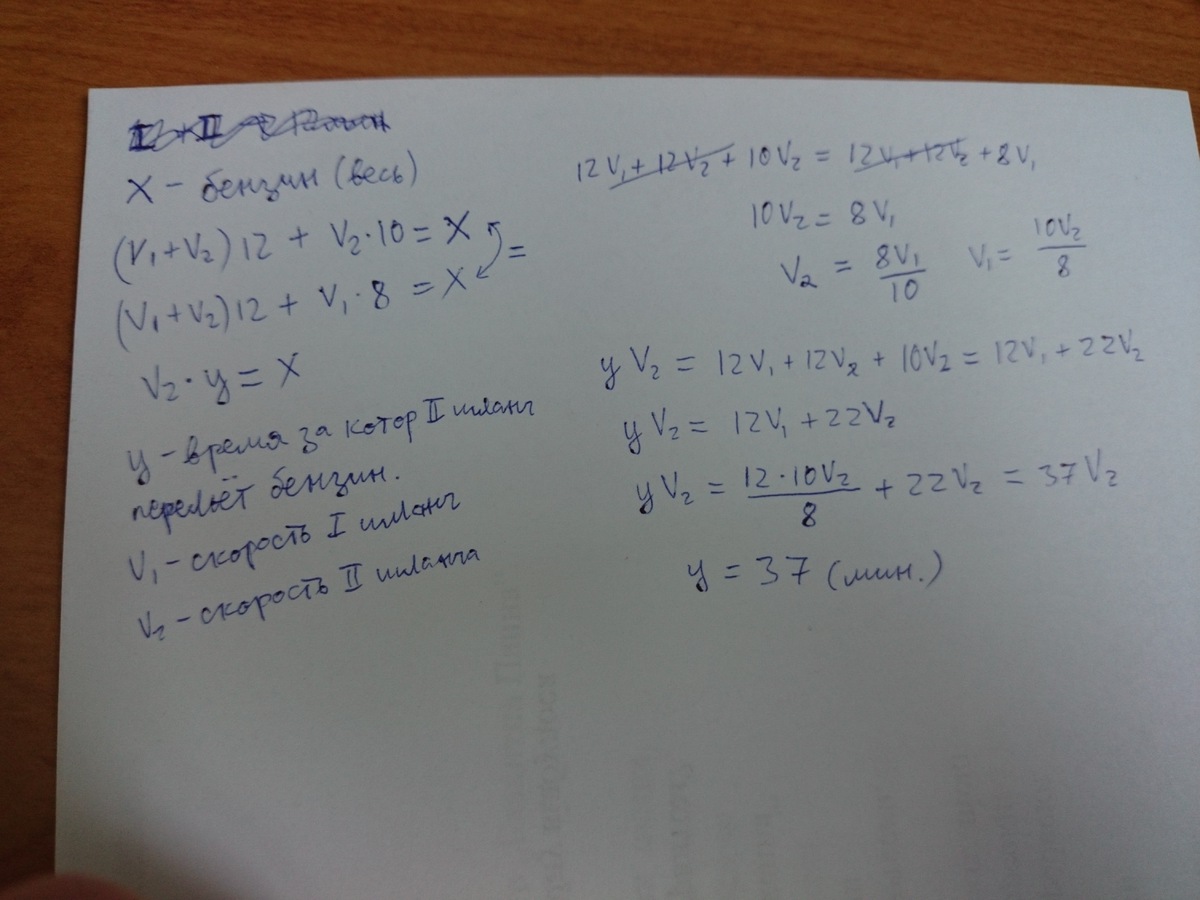 X – бензин (весь)
(V₁+V₂)12 + V₂·10 = X
(V₁+V₂)12 + V₁·8 = X =
V₂·y = X
y – время за котор II шланг
перельёт бензин.
V₁ – скорость I шланг
V₂ – скорость II шланга
12V₁ + 12V₂ + 10V₂ = 12V₁ + 12V₂ + 8V₁
10V₂ = 8V₁
V₂ = 8V₁/10 V₁ = 10V₂/8
yV₂ = 12V₁ + 12V₂ + 10V₂ = 12V₁ + 22V₂
yV₂ = 12V₁ + 22V₂
yV₂ = 12·10V₂/8 + 22V₂ = 37V₂
y = 37 (мин.)